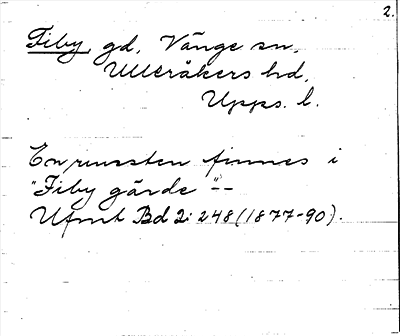 2.
Fiby gd, Vänge sn,
Ulleråkers hd,
Upps. l.
En runsten finnes i
"Fiby gärde"--
Ufmt Bd 2: 248 (1877-90).